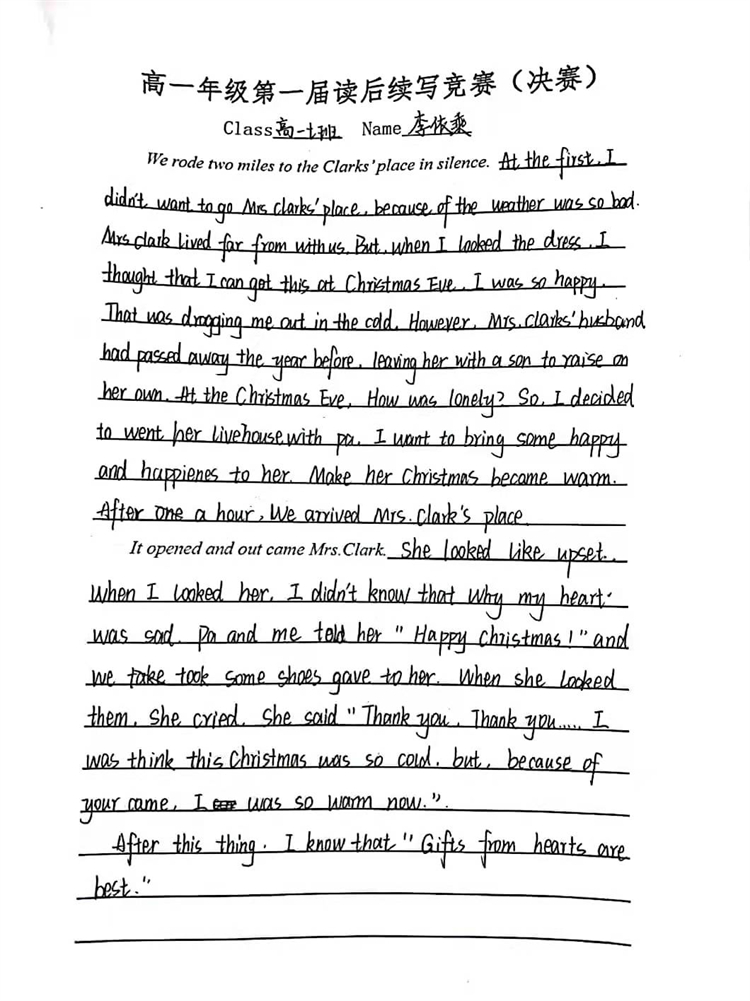 高一年级第一届读后续写竞赛（决赛）
Class 高一七班 Name 李依乘
We rode two miles to the Clarks' place in silence. At the first, I
didn't want to go Mrs clarks' place, because of the weather was so bad.
Mrs clark lived far from with us. But, when I looked the dress, I
thought that I can got this at Christmas Eve, I was so happy.
That was dragging me out in the cold. However, Mrs. clarks' husband
had passed away the year before, leaving her with a son to raise on
her own. At the Christmas Eve, How was lonely? So, I decided
to went her livehouse with pa. I want to bring some happy
and happienes to her. Make her Christmas became warm.
After one a hour, We arrived Mrs. Clark's place.
It opened and out came Mrs. Clark. She looked like upset.
When I looked her, I didn't know that why my heart
was sad. Pa and me told her "Happy christmas!" and
we take took some shoes gave to her. When she looked
them, She cried. She said "Thank you, Thank you..... I
was think this Christmas was so cold, but, because of
your came, I was so warm now.".
After this thing. I know that "Gifts from hearts are
best."